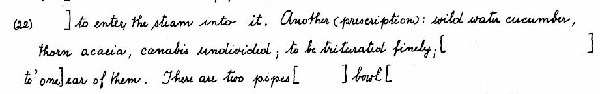 (22) ] to enter the steam into it. Another (prescription): wild water cucumber,
thorn acacia, canabis undivided; to be triturated finely; [ ]
to' one] ear of them. There are two pipes [ ] bowl [